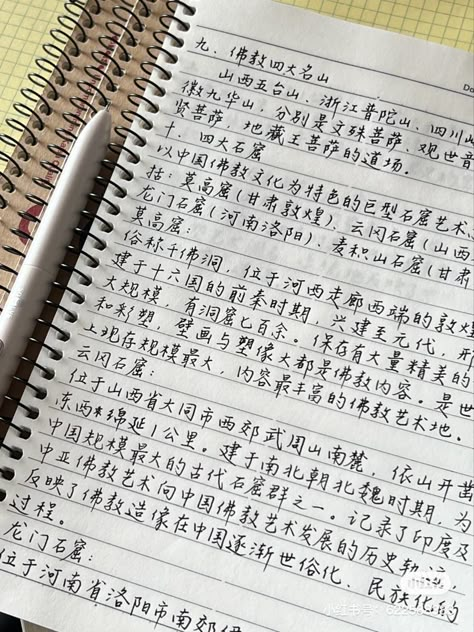 九、佛教四大名山
山西五台山、浙江普陀山、四川
徽九华山，分别是文殊菩萨、观世音
贤菩萨、地藏王菩萨的道场。
十、四大石窟
以中国佛教文化为特色的巨型石窟艺术
括：莫高窟(甘肃敦煌)、云冈石窟(山西
龙门石窟(河南洛阳)、麦积山石窟(甘肃
莫高窟：
俗称千佛洞，位于河西走廊西端的敦煌
建于十六国的前秦时期，兴建至元代，开
大规模，有洞窟七百余。保存有大量精美的
和彩塑，壁画与塑像大都是佛教内容。是世
上现存规模最大，内容最丰富的佛教艺术地。
云冈石窟：
位于山西省大同市西郊武周山南麓，依山开凿
东西绵延1公里。建于南北朝北魏时期，为
中国规模最大的古代石窟群之一。记录了印度及
中亚佛教艺术向中国佛教艺术发展的历史轨
反映了佛教造像在中国逐渐世俗化、民族化的
过程。
龙门石窟：
位于河南省洛阳市南郊
小红书
小红书号：